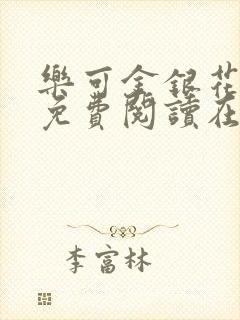 樂可金銀花
免費閱讀在
李富林